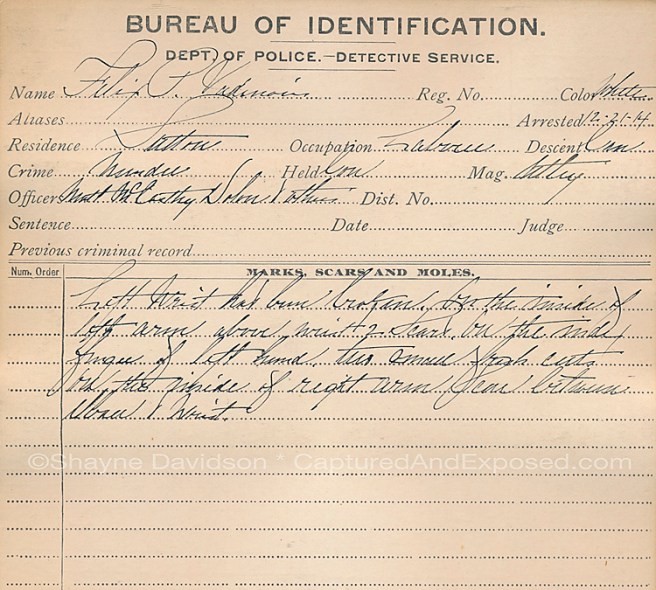 BUREAU OF IDENTIFICATION.
DEPT. OF POLICE.—DETECTIVE SERVICE.
Name Reg. No. Color White
Aliases Arrested 12-21-14
Residence Occupation Descent
Crime Murder Held Cor Mag.
Officer McCarthy Dolon & others Dist. No.
Sentence Date Judge
Previous criminal record
Num. Order MARKS, SCARS AND MOLES.
Left Wrist has been broken. on the inside of
left arm above wrist 2 scars. on the
finger of left hand. two small fresh cuts
on the inside of right arm between
Elbow & wrist.
©Shayne Davidson * CapturedAndExposed.com